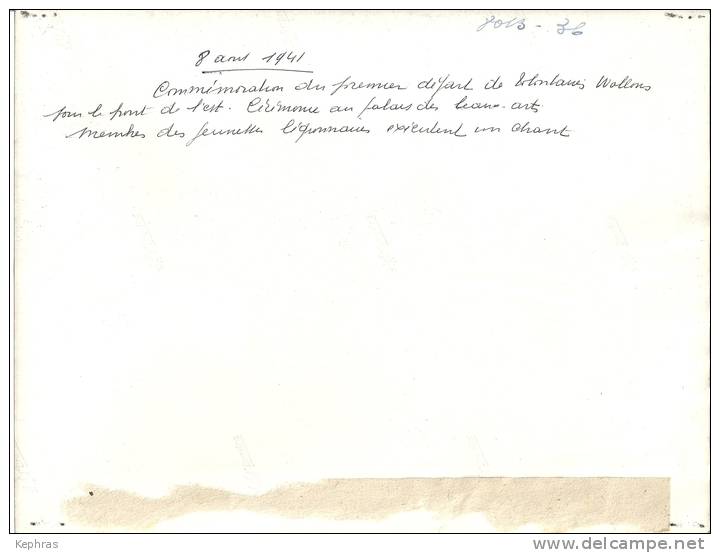 8013 - 36
8 aout 1941
Commémoration du premier départ de Volontaires Wallons
pour le front de l'est. Cérémonie au palais des beaux-arts.
Membres des Jeunesses légionnaires exécutent un chant
Kephras
www.delcampe.net